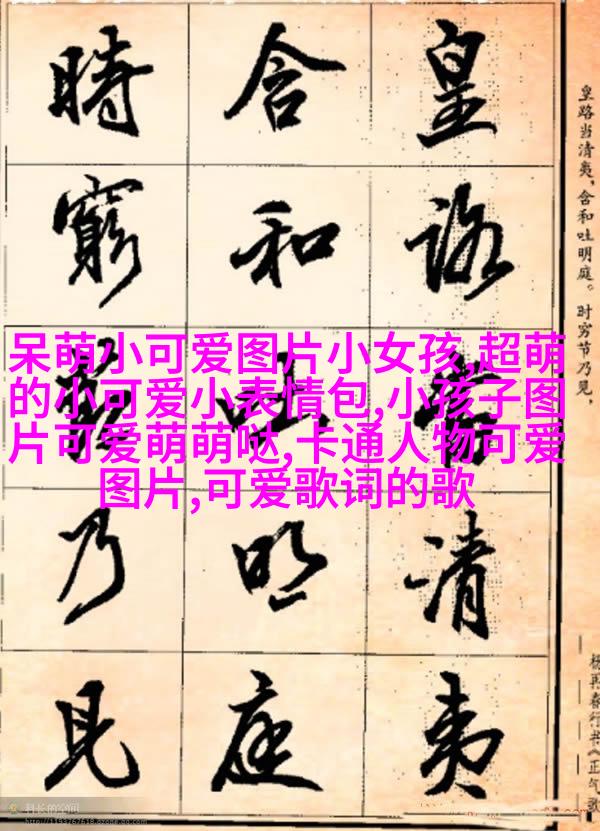 皇路当清夷,含和吐明庭。时穷节乃见,
杨再春行书《正气歌
皇路當清夷
含和吐明庭
時窮節乃見
呆萌小可爱图片小女孩,超萌
的小可爱小表情包,小孩子图
片可爱萌萌哒,卡通人物可爱
图片,可爱歌词的歌
科长的空间